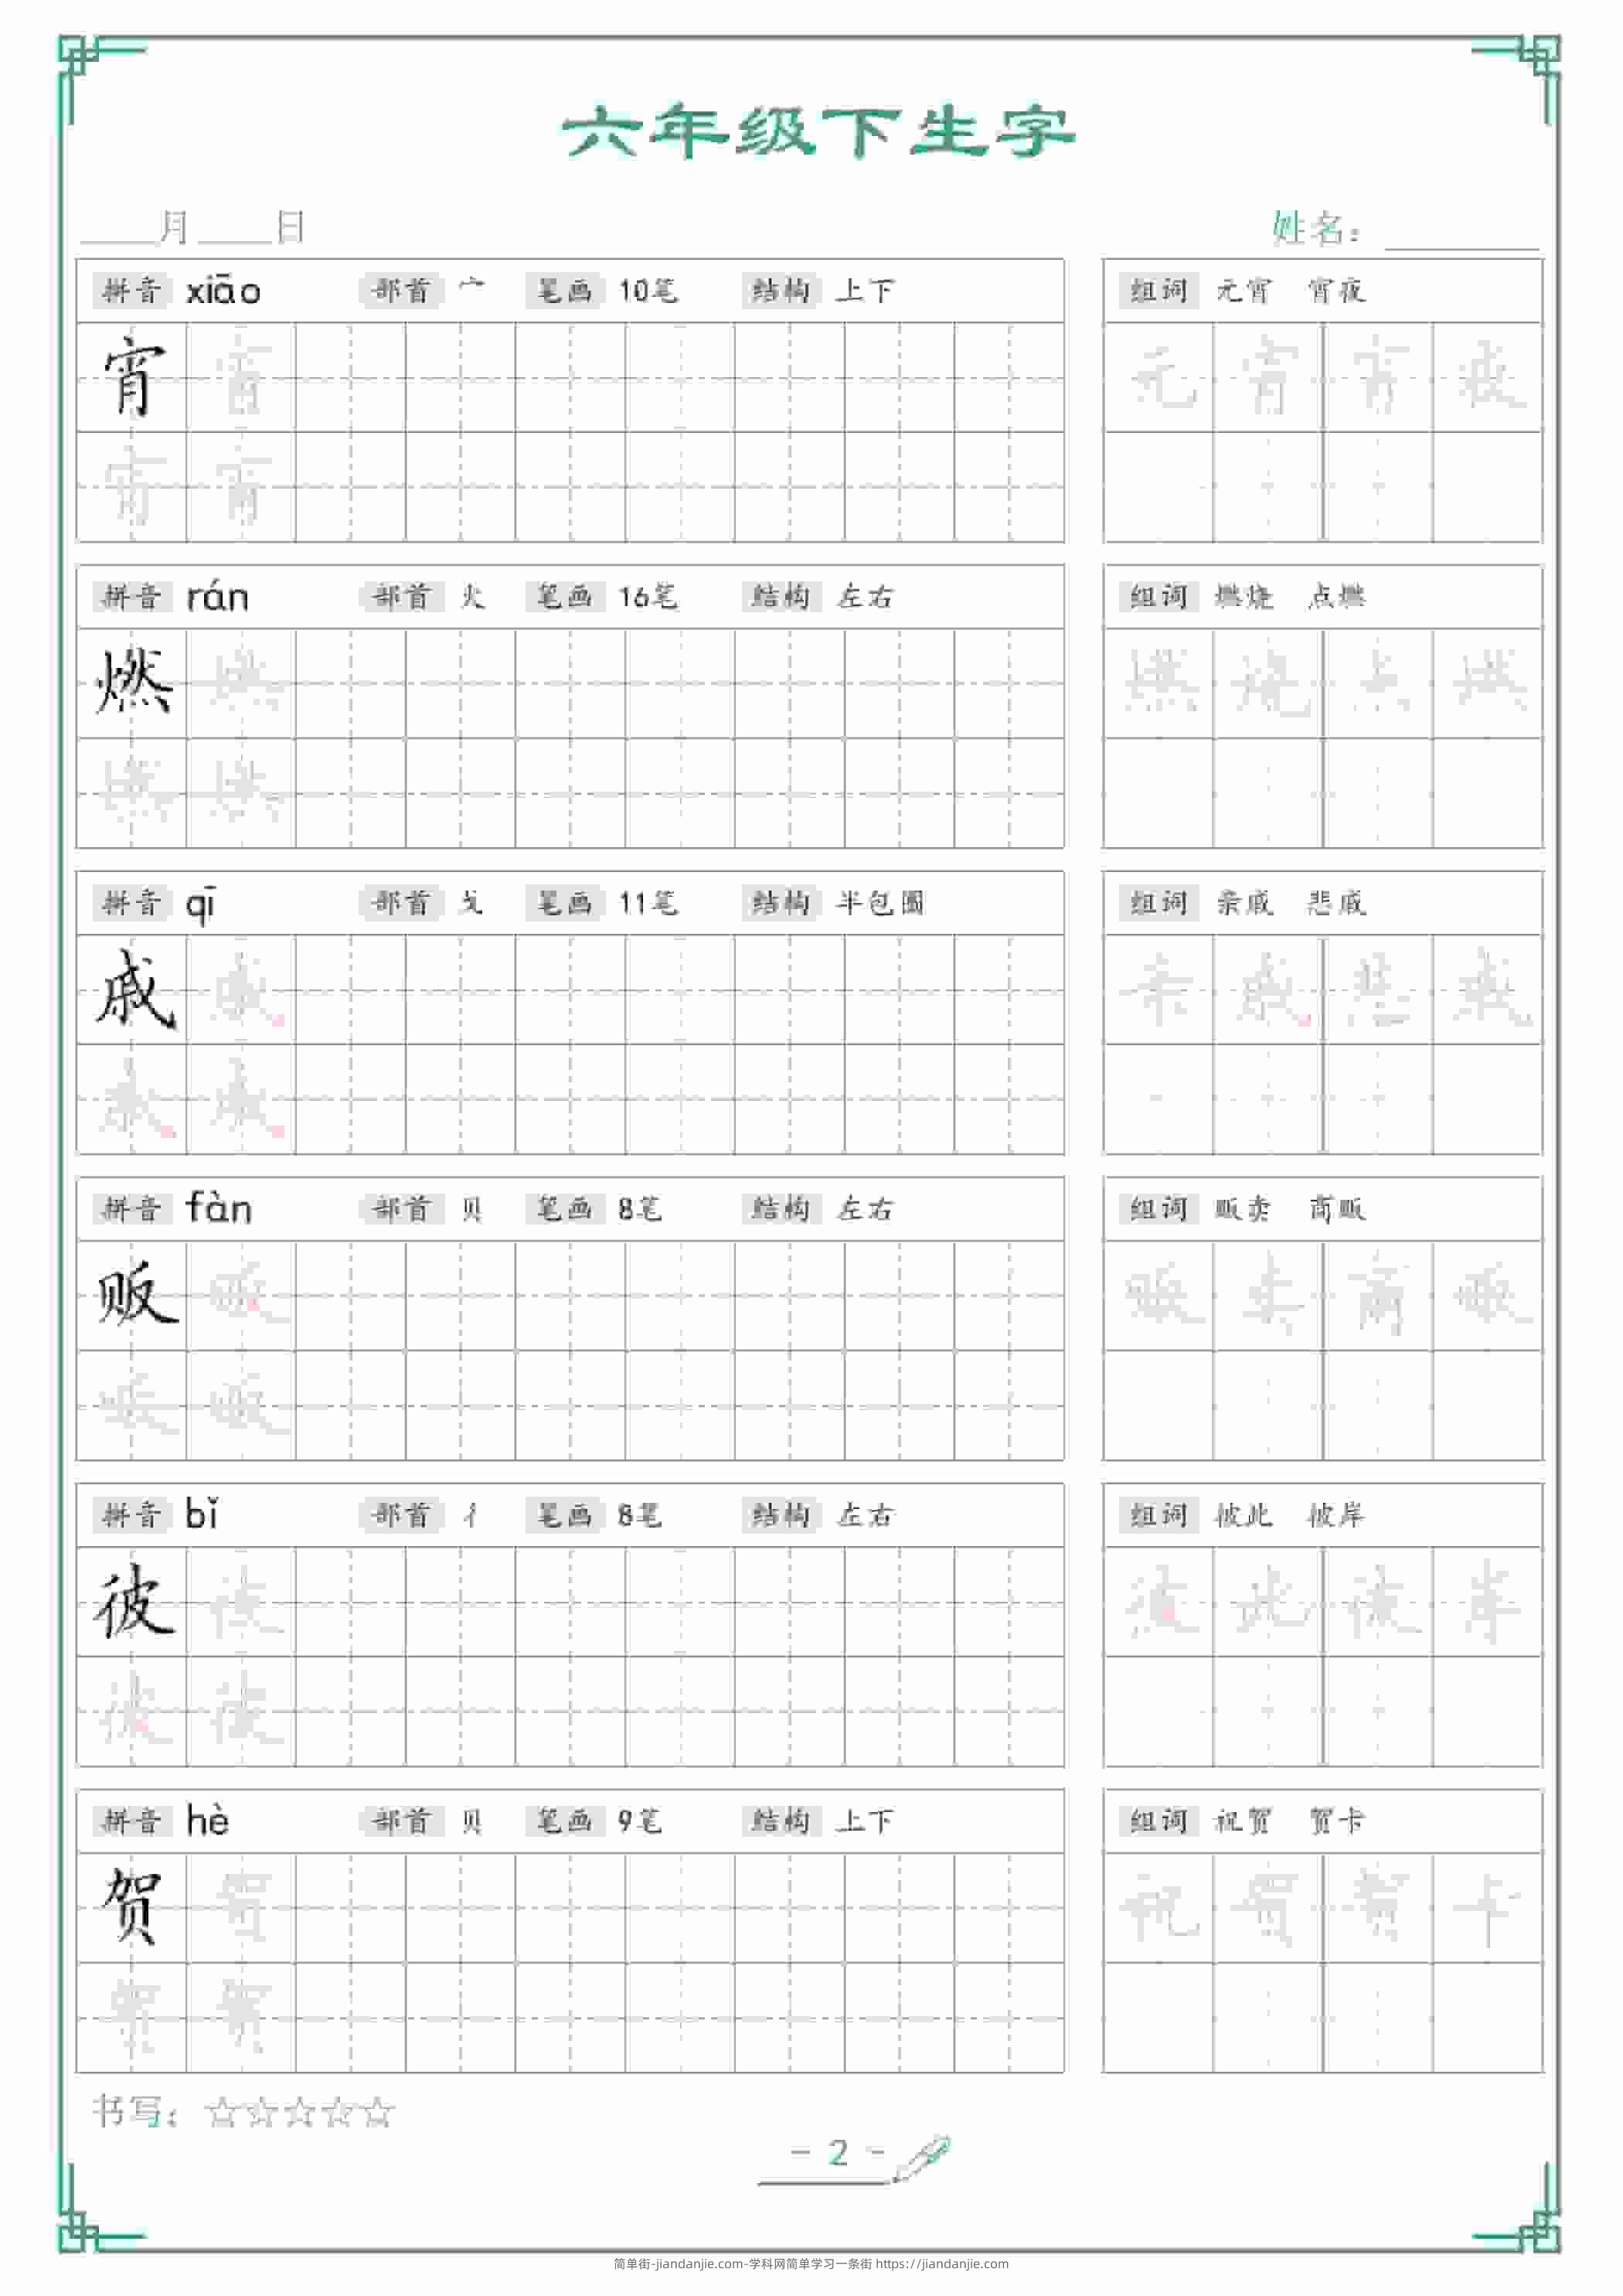 六年级下生字
____月____日 姓名：________
拼音 xiāo 部首 宀 笔画 10笔 结构 上下 组词 元宵 宵夜
宵 宵 元 宵 宵 夜
宵 宵
拼音 rán 部首 火 笔画 16笔 结构 左右 组词 燃烧 点燃
燃 燃 燃 烧 点 燃
燃 燃
拼音 qī 部首 戈 笔画 11笔 结构 半包围 组词 亲戚 悲戚
戚 戚 亲 戚 悲 戚
戚 戚
拼音 fàn 部首 贝 笔画 8笔 结构 左右 组词 贩卖 商贩
贩 贩 贩 卖 商 贩
贩 贩
拼音 bǐ 部首 彳 笔画 8笔 结构 左右 组词 彼此 彼岸
彼 彼 彼 此 彼 岸
彼 彼
拼音 hè 部首 贝 笔画 9笔 结构 上下 组词 祝贺 贺卡
贺 贺 祝 贺 贺 卡
贺 贺
书写：☆☆☆☆☆
- 2 -
简单街-jiandanjie.com-学科网简单学习一条街 https://jiandanjie.com